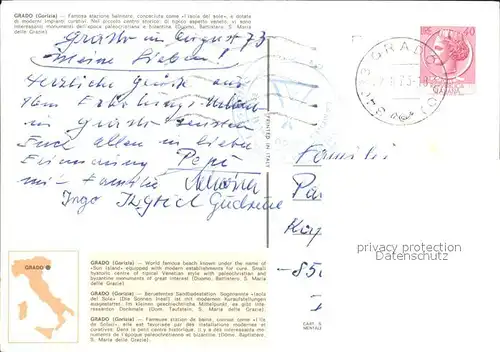 GRADO (Gorizia) — Famosa stazione balneare, conosciuta come «Isola del sole», è dotata
di moderni impianti curativi. Nel piccolo centro storico, di tipico aspetto veneto, vi sono
interessanti monumenti dell'epoca paleocristiana e bizantina (Duomo, Battistero, S. Maria
delle Grazie)
Grado im August 73
Meine Lieben!
Herzliche Grüße aus
Grado senden
Euch allen in lieber
Erinnerung Papi
mit Familie
Ingo Sigrid Gudrun
PRINTED IN ITALY
LIRE 40
GRADO
Familie
privacy protection
Datenschutz
GRADO
GRADO (Gorizia) — World famous beach known under the name of
«Sun Island» equipped with modern establishments for cure. Small
historic centre of typical Venetian style with paleochristian and
byzantine monuments of great interest (Duomo, Battistero, S. Maria
delle Grazie)
GRADO (Gorizia) — Beruehmtes Sandbadestation Sogenannte «Isola
del Sole» (Die Sonnen Insel) ist mit modernen Kurausfstellungen
ausgestattet. Im kleinen geschichtliche Mittelpunkt, es gibt inte-
ressanten Denkmale (Dom, Taufstein, S. Maria delle Grazie).
GRADO (Gorizia) — Fameuse station de bains, connue comme «l'Ile
de Soleil», elle est favorisée par des installations modernes et
curatives. Dans le petit centre historique, il y a des interessants mo-
numents de l'époque paleochretienne et bizantine (Dôme, Baptistère,
S. Maria delle Grazie)